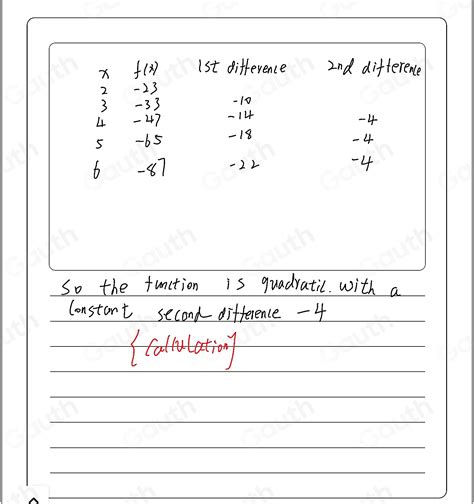 x f(x) 1st difference 2nd difference
2 -23
3 -33 -10
4 -47 -14 -4
5 -65 -18 -4
6 -87 -22 -4
So the function is quadratic. with a
constant second difference -4
{calculation}
Gauth